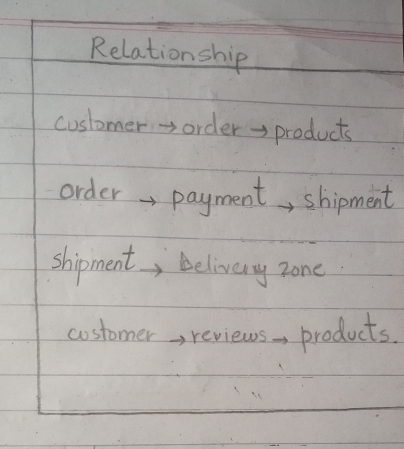 Relationship
customer → order → products
order → payment → shipment
shipment → Delivery zone
customer → reviews → products.